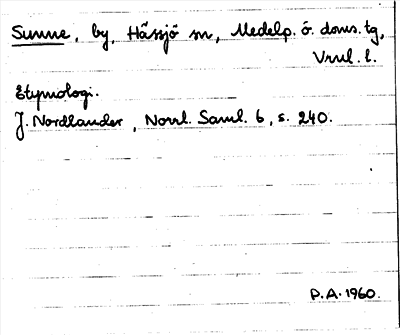 Sunne, by, Hässjö sn, Medelp. ö. doms. tg,
Vrml. l.
Etymologi.
J. Nordlander, Norrl. Saml. 6, s. 240.
P.A. 1960.